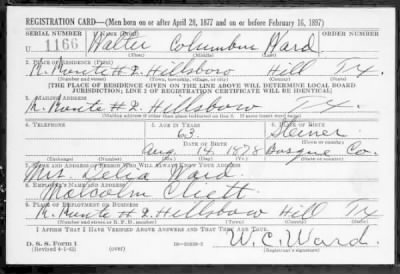 REGISTRATION CARD—(Men born on or after April 28, 1877 and on or before February 16, 1897)
SERIAL NUMBER 1. NAME (Print) ORDER NUMBER
U 1166 Walter Columbus Ward
(First) (Middle) (Last)
2. PLACE OF RESIDENCE (Print)
R. Route #2 Hillsboro Hill Tx.
(Number and street) (Town, township, village, or city) (County) (State)
[THE PLACE OF RESIDENCE GIVEN ON THE LINE ABOVE WILL DETERMINE LOCAL BOARD
JURISDICTION; LINE 2 OF REGISTRATION CERTIFICATE WILL BE IDENTICAL]
3. MAILING ADDRESS
R. Route #2 Hillsboro Tx.
[Mailing address if other than place indicated on line 2. If same insert word same]
4. TELEPHONE 5. AGE IN YEARS 6. PLACE OF BIRTH
63 Steiner
DATE OF BIRTH (Town or county)
Aug 14, 1878 Bosque Co.
(Exchange) (Number) (Mo.) (Day) (Yr.) (State or country)
7. NAME AND ADDRESS OF PERSON WHO WILL ALWAYS KNOW YOUR ADDRESS
Mrs. Delia Ward
8. EMPLOYER'S NAME AND ADDRESS
Malcolm Cliett
9. PLACE OF EMPLOYMENT OR BUSINESS
R. Route #2 Hillsboro Hill Tx
(Number and street or R. F. D. number) (Town) (County) (State)
I AFFIRM THAT I HAVE VERIFIED ABOVE ANSWERS AND THAT THEY ARE TRUE.
D. S. S. Form 1
(Revised 4-1-42) W. C. Ward.
(Registrant's signature)